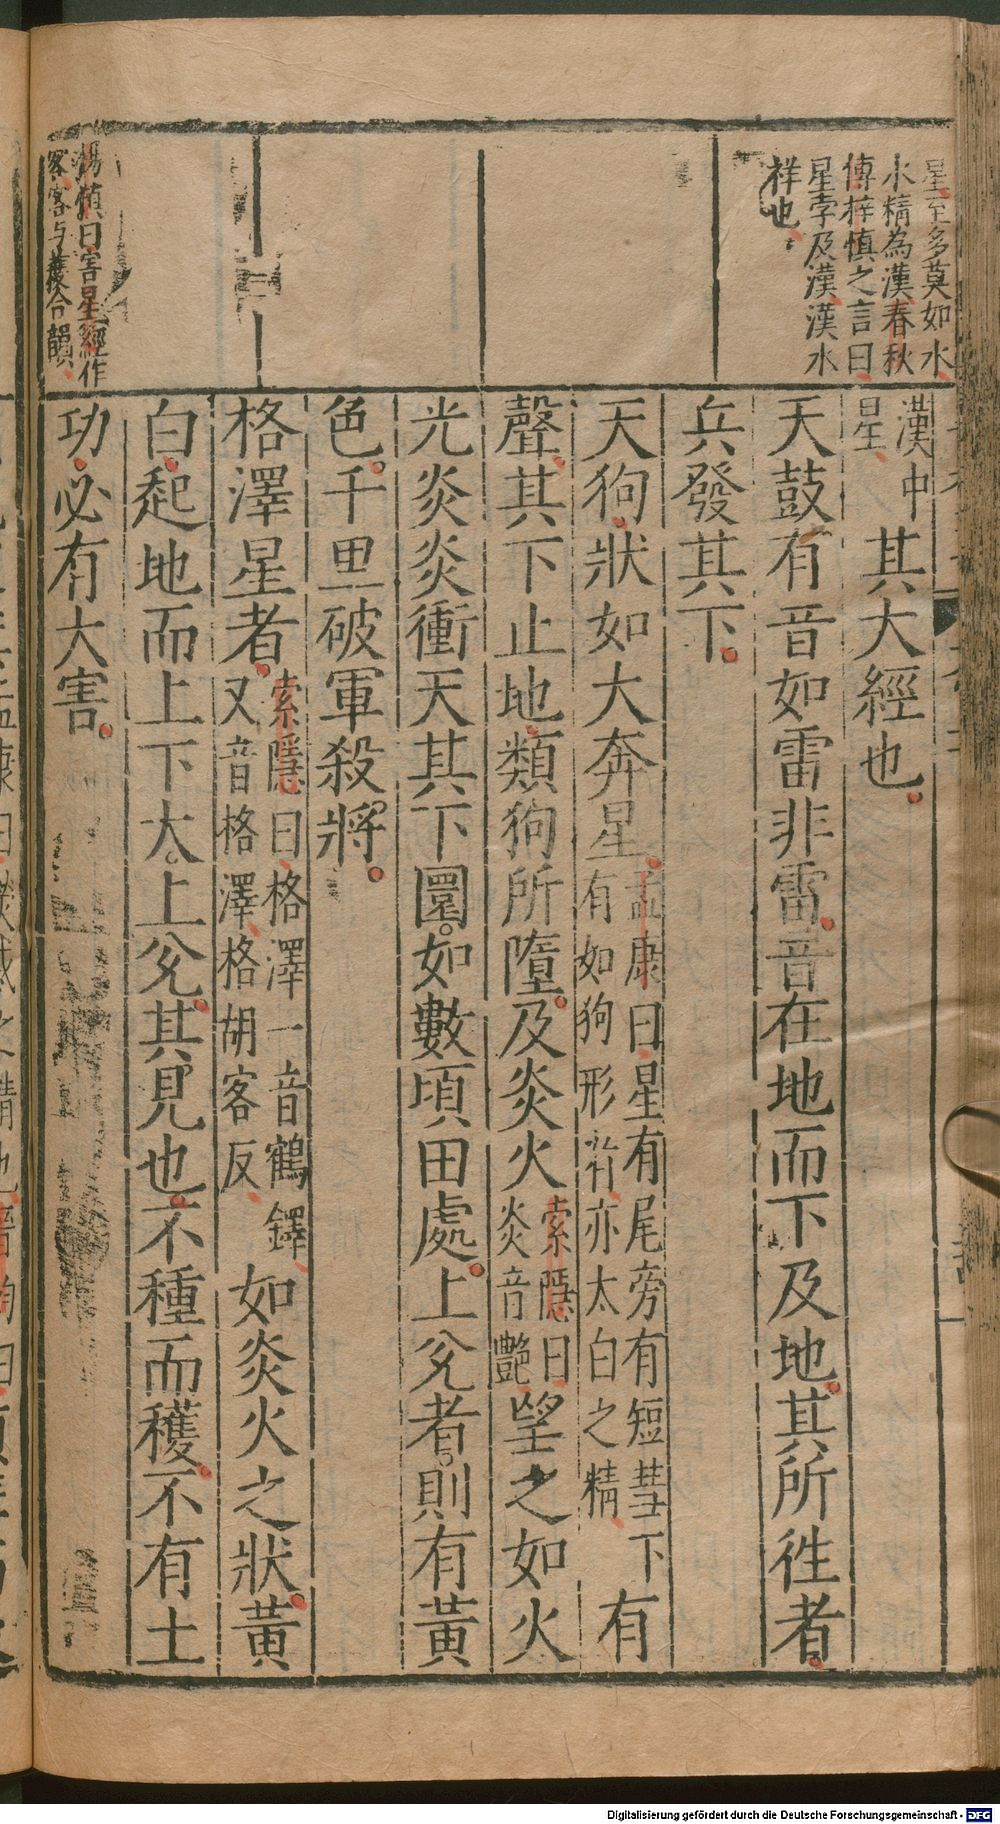 星至多莫如水
水精為漢春秋
傳梓慎之言曰
星孛及漢漢水
祥也
漢中
星
其大經也
天鼓有音如雷非雷音在地而下及地其所徃者
兵發其下
天狗狀如大奔星
孟康曰星有尾旁有短彗下有
有如狗形者亦太白之精
有
聲其下止地類狗所墮及炎火
索隱曰
炎音艷
望之如火
光炎炎衝天其下圜如數頃田處上兊者則有黃
色千里破軍殺將
格澤星者
索隱曰格澤一音鶴鐸
又音格澤格胡客反
如炎火之狀黃
白起地而上下大上兊其見也不種而穫不有土
功必有大害
楊慎曰害星經作
客客与蒦合韻
Digitalisierung gefördert durch die Deutsche Forschungsgemeinschaft - DFG